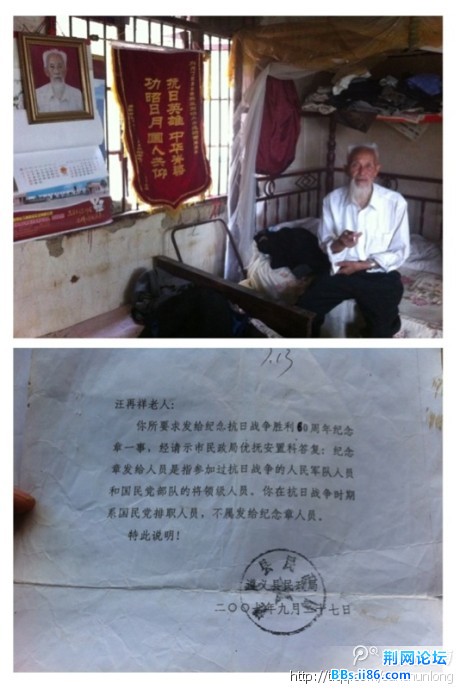 抗日英雄 中华脊梁
功昭日月 国人共仰
7.13
汪再祥老人：
你所要求发给纪念抗日战争胜利60周年纪念
章一事，经请示市民政局优抚安置科答复：纪念
章发给人员是指参加过抗日战争的人民军队人员
和国民党部队的将领级人员。你在抗日战争时期
系国民党排职人员，不属发给纪念章人员。
特此说明！
遵义县民政局
二〇〇 年九月二十七日
荆网论坛
BBs.ii86.com